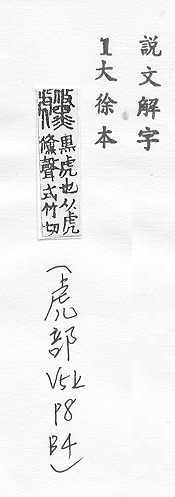 說文解字
1大徐本
虪
黑虎也从虎
儵聲式竹切
(虎部 V5上 P8 B4)